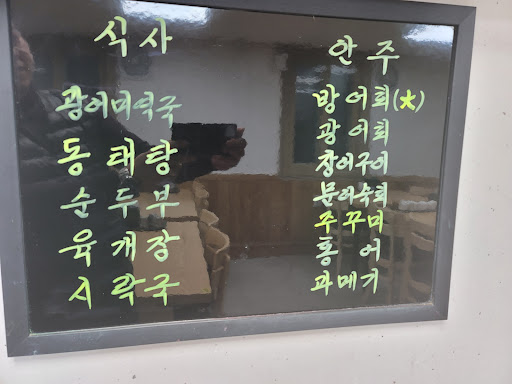 식사
광어미역국
동태탕
순두부
육개장
시락국
안주
방어회(★)
광어회
장어구이
문어숙회
쭈꾸미
홍어
과메기